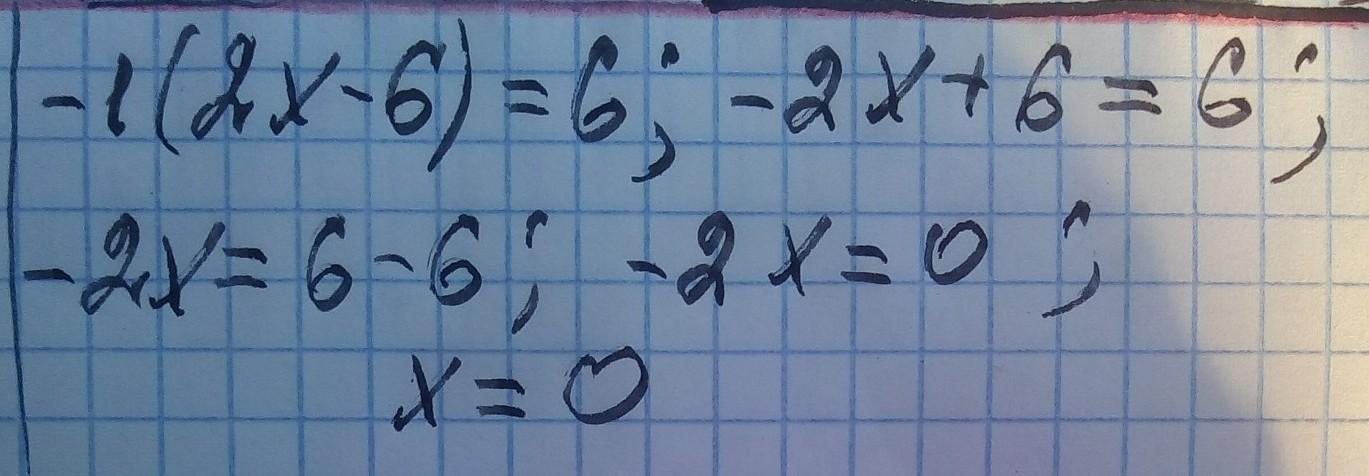 -1(2x-6)=6; -2x+6=6;
-2x=6-6; -2x=0;
x=0